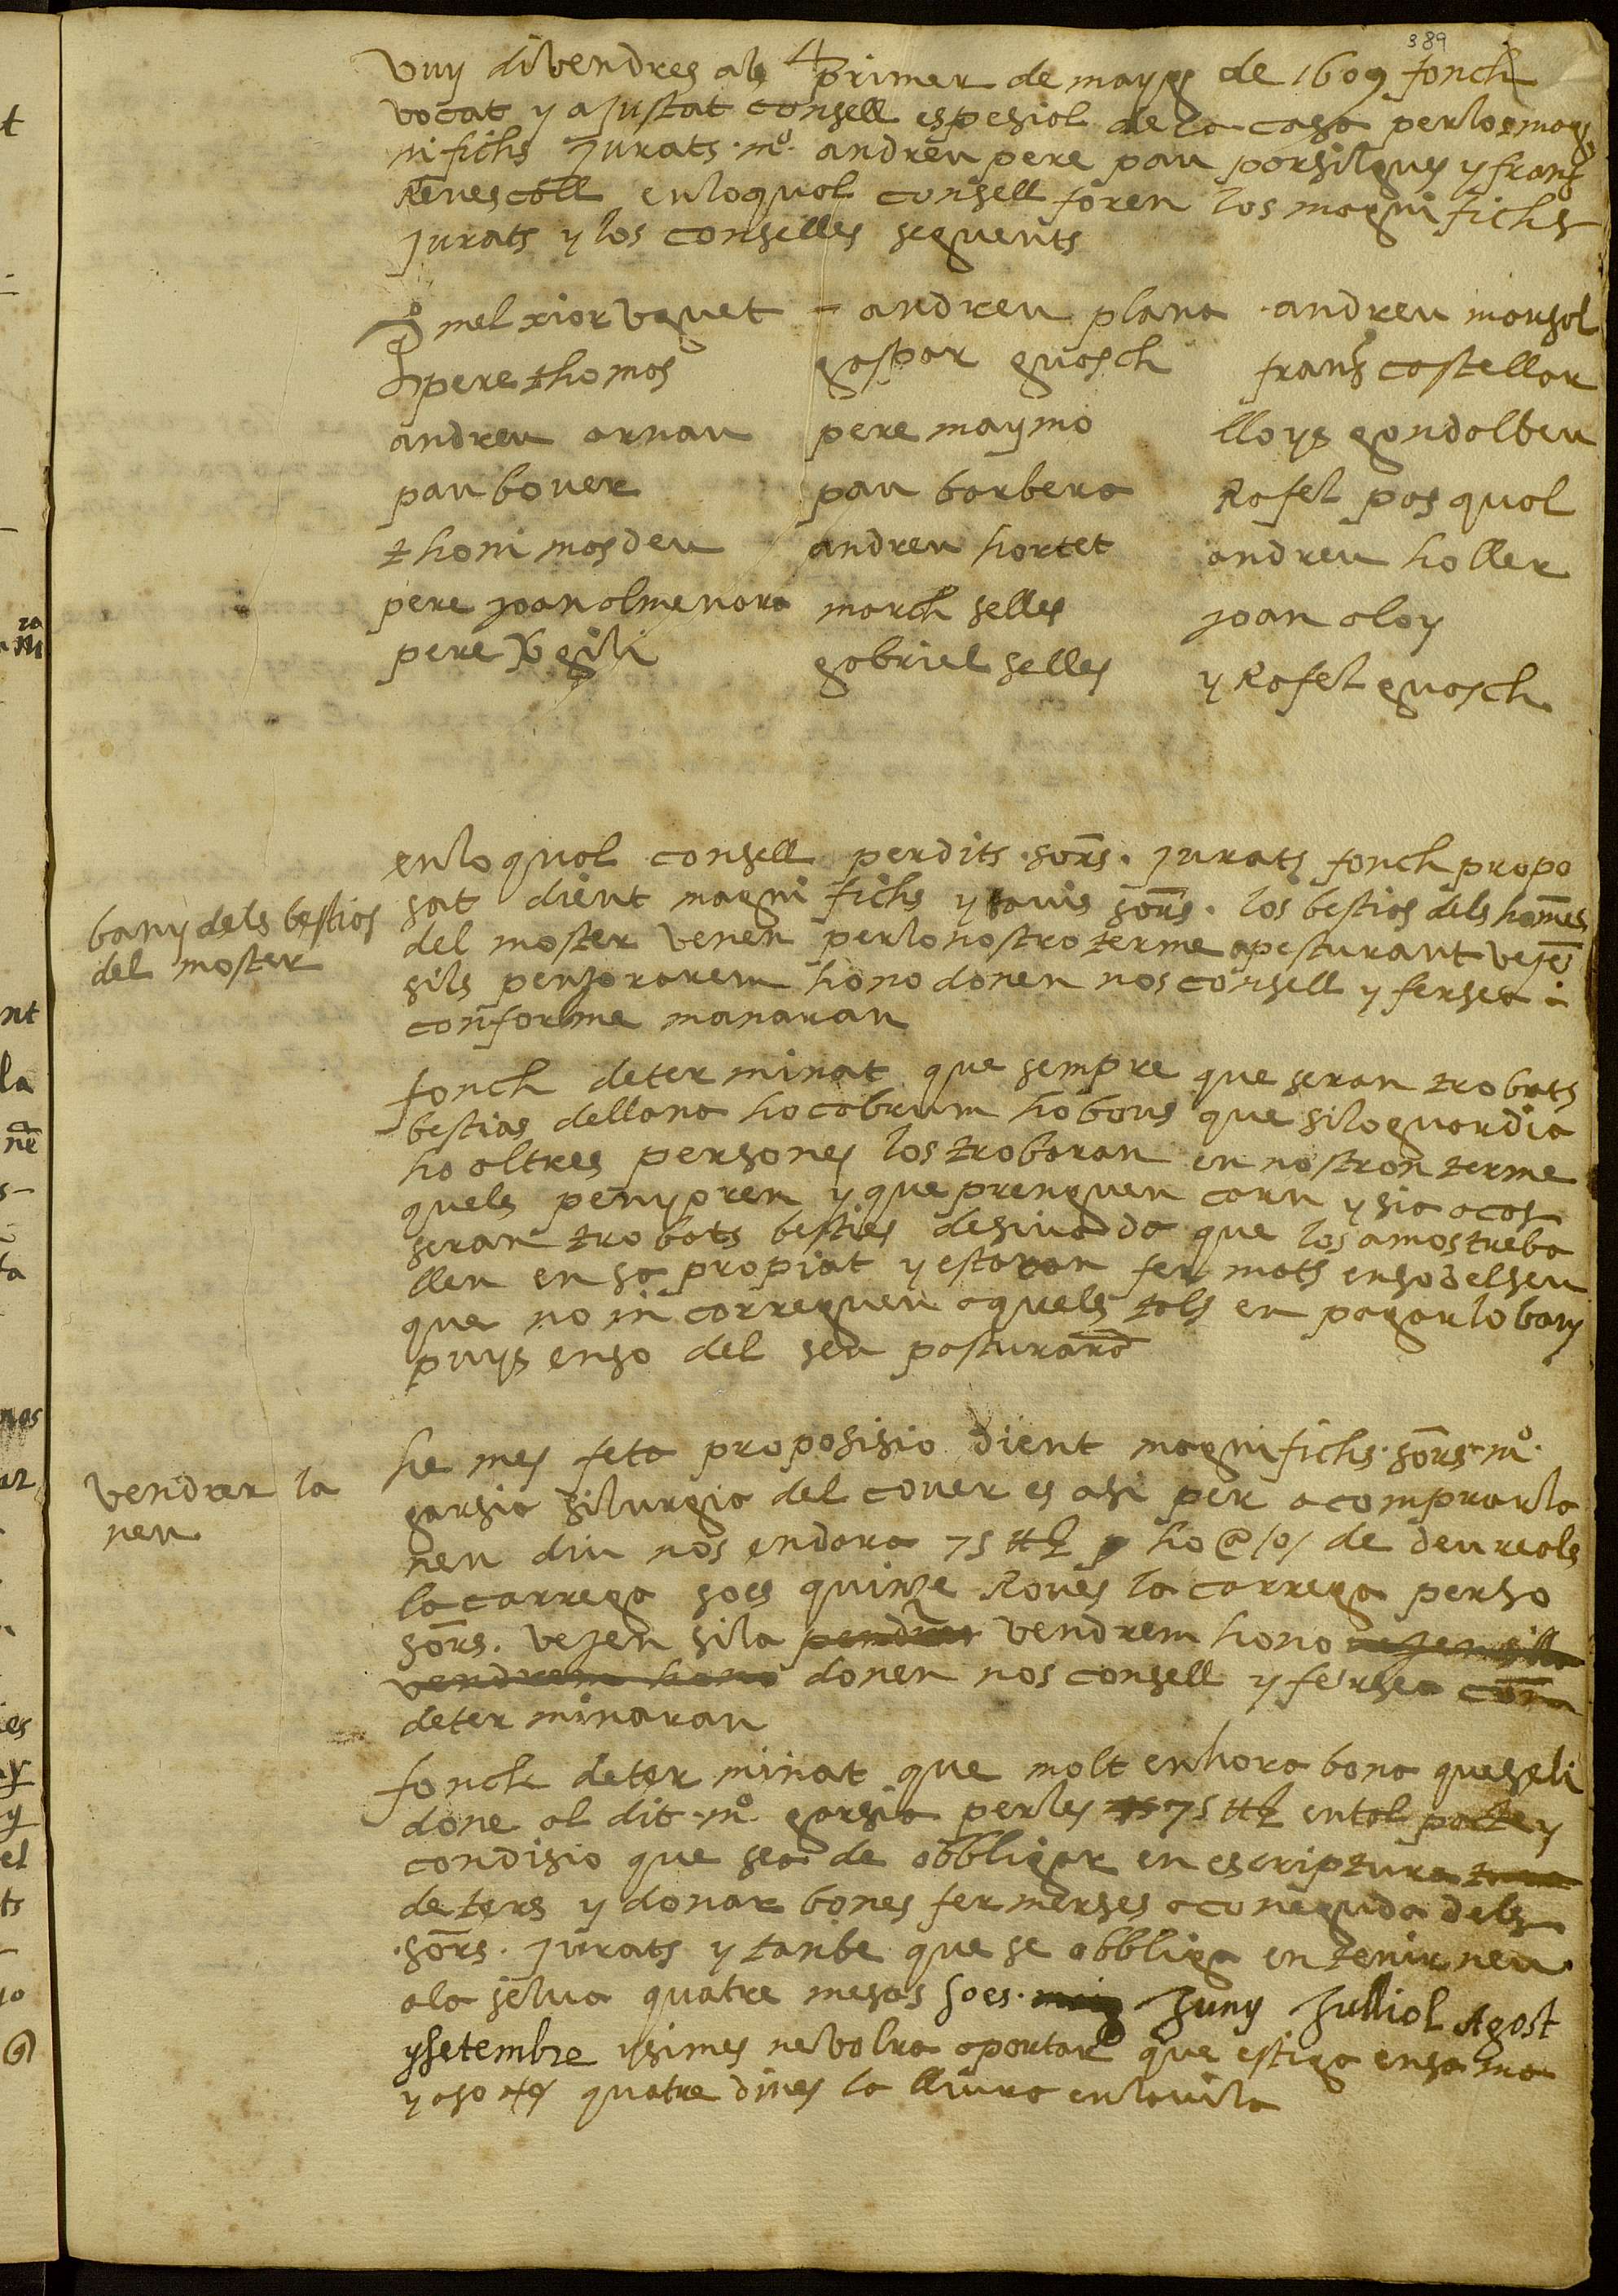 389
vuy divendres als 4 primer de mayg de 1609 fonch
vocat y ajustat consell espesial de la casa per los mag
nifichs jurats .mo. andreu pere pau porsilgues y frans
Revescoll en lo qual consell foren los magnifichs
jurats y los conselles seguents
mo melxior vaguet - andreu plana . andreu monsol
pere thomas gaspar guasch frans castellar
andreu arnau pere maymo lloys gondolbeu
pau bover pau barbera Rafel pasqual
thoni masdeu andreu hortet andreu holler
pere joan almenara march selles joan aloy
pere gili gabriel selles y Rafel guasch
en lo qual consell per dits .sors. jurats fonch propo
sat dient magnifichs y savis sors. los bestias dels homes
bany dels bestias
del moster venen per lo nostro terme apesturant vejen
del moster
sils penjorarem ho no donen nos consell y fersea
conforme manaran
fonch determinat que sempre que seran trobats
bestias de llana ho cabrum ho bous que si lo guardia
ho altres persones los trobaran en nostron terme
quels penyoren y que prenguen carn y sia a cas
seran trobats besties desivada que los amos treba
llen en sa propiat y estaran fermats en so del seu
que no in correguen aquels tals en pagar lo bany
puys en so del seu pasturara
he mes feta proposisio dient magnifichs .sors. mo.
vendrer la
garsia silurgia del cover es asi per a comprar la
neu
neu diu nos endara 75 ħ ho de deu reals
la carrega soes quinze Roves la carrega per so
sors. vejen si la pendrer vendrem ho no vejen silla
vendrem hono donen nos consell y fersea com
determinaran
fonch determinat que molt enhora bona que se li
done al dit .mo. garsia per les 75 ħ en tal pacte y
condisio que sea de obbligar en escriptura
de ters y donar bones fermerses a coneguda dels
.sors. jurats y tanbe que se obbliga en tenir neu
a la selva quatre mesos soes. maig Juny Julliol Agost
y setembre y si mes ne volra aportar que estiga en sa ma
y aso quatre dines la lliura en la vila